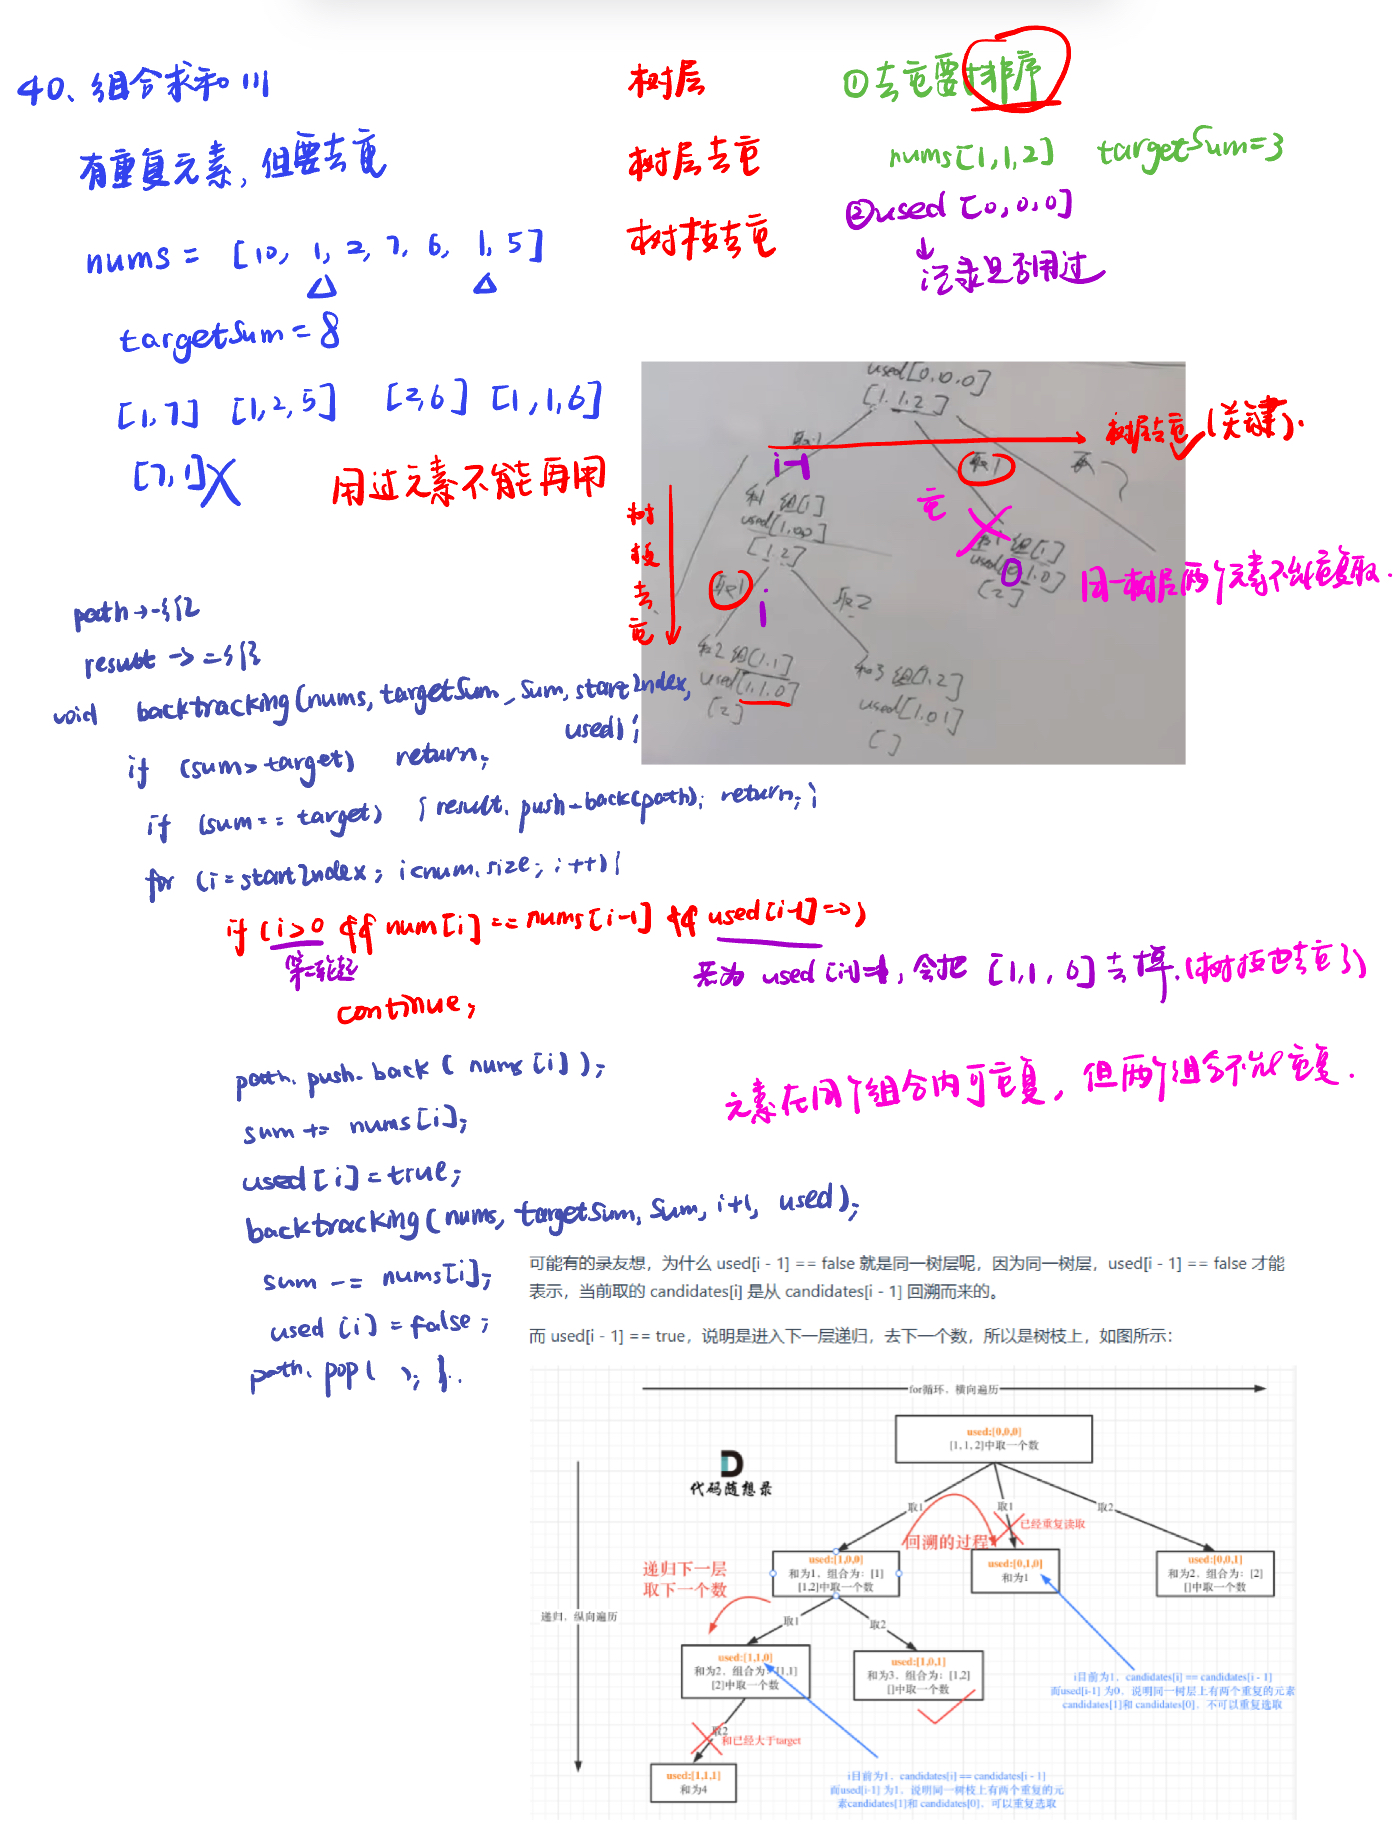 40、组合求和 III
有重复元素,但要去重
nums = [10, 1, 2, 7, 6, 1, 5]
targetSum = 8
[1,7] [1,2,5] [2,6] [1,1,6]
[7,1]X 用过元素不能再用
树层
树层去重
树枝去重
①去重要排序
nums[1,1,2] targetSum=3
②used [0,0,0]
↓
记录是否用过
used[0,0,0]
[1.1.2]
取1
取1
i-1
树层去重 (关键).
和1 组[1]
used[1,0,0]
[1,2]
重
0
[2]
同一树层两个元素不能重复取.
树枝去重
取1
i
取2
和2 组[1.1]
used[1.1.0]
[2]
和3 组[1.2]
used[1.0.1]
[ ]
path ->
result -> =
void backtracking(nums, targetSum, sum, startIndex,
used);
if (sum> target) return;
if (sum== target) { result.push-back(path); return; }
for (i = startIndex; i<num.size; i++){
if (i>0 && num[i] == nums[i-1] && used[i-1]==0)
若为 used[i-1]=1, 会把 [1,1,0]去掉.(树枝也去重了)
continue;
path.push.back ( nums[i]);
元素在同个组合内可重复, 但两个组合不能重复.
sum += nums[i];
used[i] = true;
backtracking( nums, targetSum, sum, i+1, used);
sum -= nums[i];
used [i] = false;
path.pop( ); }.
可能有的录友想,为什么 used[i - 1] == false 就是同一树层呢,因为同一树层,used[i - 1] == false 才能
表示,当前取的 candidates[i] 是从 candidates[i - 1] 回溯而来的。
而 used[i - 1] == true,说明是进入下一层递归,去下一个数,所以是树枝上,如图所示:
for循环,横向遍历
used:[0,0,0]
[1,1,2]中取一个数
代码随想录
取1
取1
取2
已经重复读取
回溯的过程
递归下一层
取下一个数
used:[1,0,0]
和为1,组合为:[1]
[1,2]中取一个数
used:[0,1,0]
和为1
used:[0,0,1]
和为2,组合为:[2]
[]中取一个数
递归,纵向遍历
取1
取2
used:[1,1,0]
和为2,组合为:[1,1]
[2]中取一个数
used:[1,0,1]
和为3,组合为:[1,2]
[]中取一个数
i目前为1,candidates[i] == candidates[i - 1]
而used[i-1] 为0,说明同一树层上有两个重复的元素
candidates[1]和 candidates[0],不可以重复选取
取2
和已经大于target
used:[1,1,1]
和为4
i目前为1,candidates[i] == candidates[i - 1]
而used[i-1] 为1,说明同一树枝上有两个重复的元
素candidates[1]和 candidates[0],可以重复选取